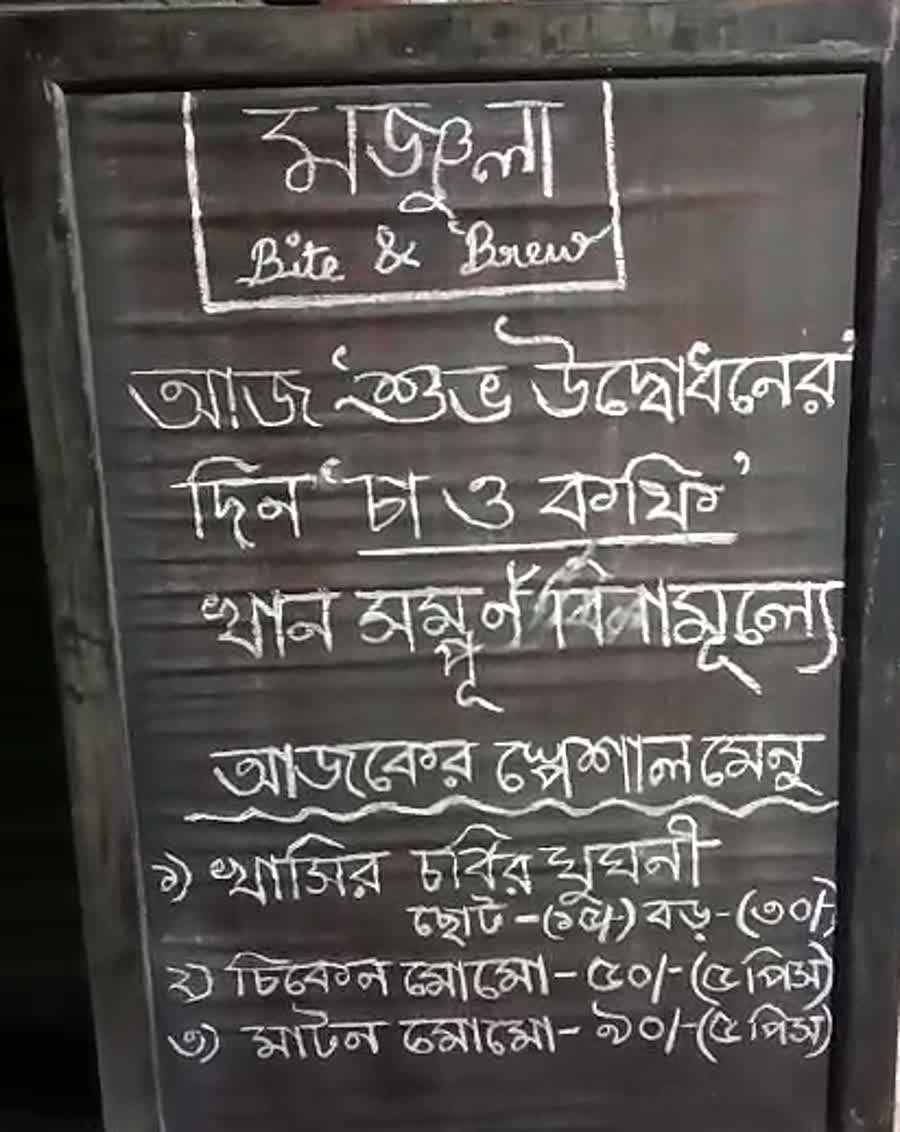 মঞ্জুলা
Bite & Brew
আজ 'শুভ উদ্বোধনের'
দিন 'চা ও কফি'
খান সম্পূর্ণ বিনামূল্যে
আজকের স্পেশাল মেনু
১) খাসির চর্বির ঘুঘনী
ছোট - (১৫/-) বড় - (৩০/-)
২) চিকেন মোমো - ৫০/- (৫ পিস)
৩) মাটন মোমো - ৯০/- (৫ পিস)